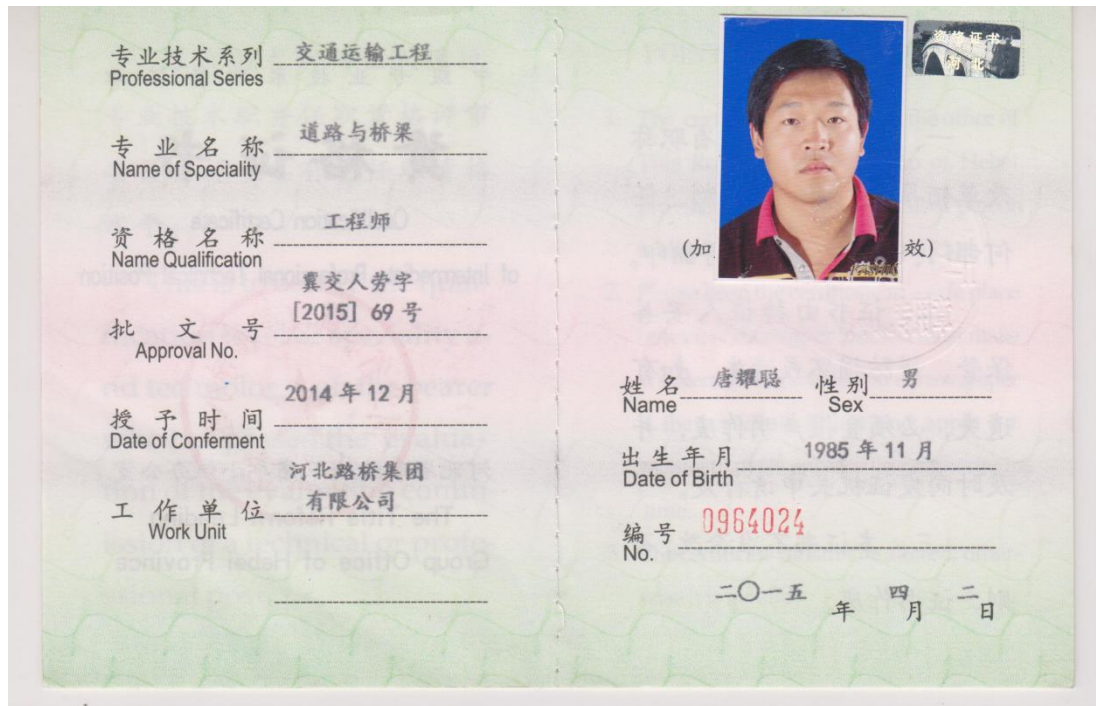 专业技术系列 交通运输工程
Professional Series
专业名称 道路与桥梁
Name of Speciality
资格名称 工程师
Name Qualification
冀交人劳字
批文号 [2015] 69 号
Approval No.
2014 年 12 月
授予时间
Date of Conferment
河北路桥集团
工作单位 有限公司
Work Unit
资格证书
河北
(加 效)
姓名 唐耀聪 性别 男
Name Sex
出生年月 1985 年 11 月
Date of Birth
编号 0964024
No.
二〇一五 年 四月 二日